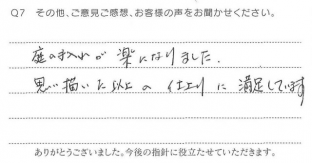 Q7 その他、ご意見ご感想、お客様の声をお聞かせください。
庭の手入れが楽になりました.
思い描いた以上の仕上りに満足しています
ありがとうございました。今後の指針に役立たせていただきます。